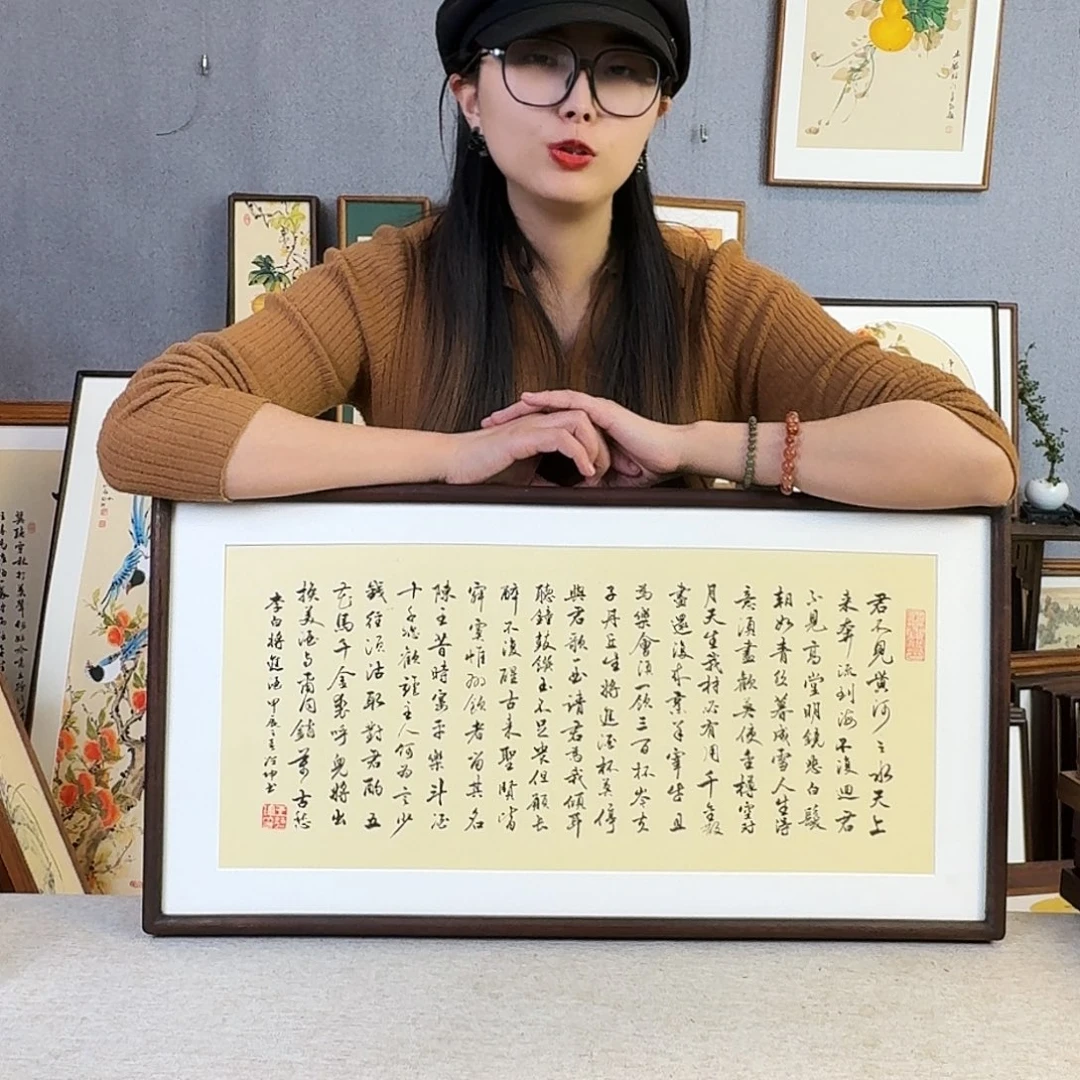 君不見黃河之水天上
来奔流到海不復迴君
不見高堂明鏡悲白髮
朝如青絲暮成雪人生得
意須盡歡莫使金樽空對
月天生我材必有用千金散
盡還復来烹羊宰牛且
為樂會須一飲三百杯岑夫
子丹丘生將進酒杯莫停
與君歌一曲請君為我傾耳
聽鐘鼓饌玉不足貴但願長
醉不復醒古来聖賢皆
寂寞惟有飲者留其名
陳王昔時宴平樂斗酒
十千恣歡謔主人何為言少
錢徑須沽取對君酌五
花馬千金裘呼兒將出
換美酒与爾同銷萬古愁
李白將進酒甲辰坤書